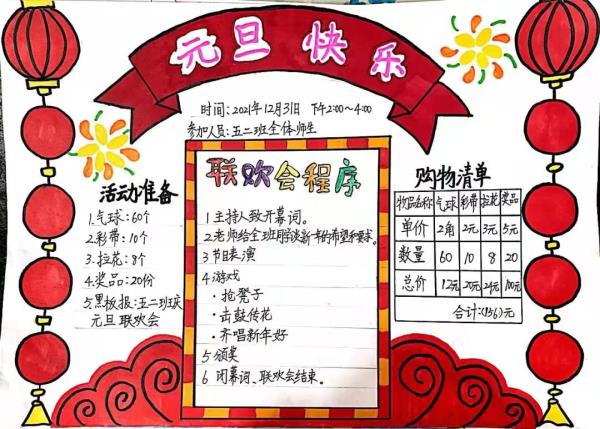 元旦快乐
时间:2021年12月31日 下午2:00~4:00
参加人员:五二班全体师生
活动准备
1.气球:60个
2.彩带:10个
3.拉花:8个
4.奖品:20份
5.黑板报:五二班庆
元旦联欢会
联欢会程序
1.主持人致开幕词。
2.老师给全班同学谈新年的希望和要求。
3 节目表演
4 游戏
·抢凳子
·击鼓传花
·齐唱新年好
5 颁奖
6 闭幕词、联欢会结束。
购物清单
物品名称 气球 彩带 拉花 奖品
单价 2角 2元 3元 5元
数量 60 10 8 20
总价 12元 20元 24元 100元
合计:(156)元